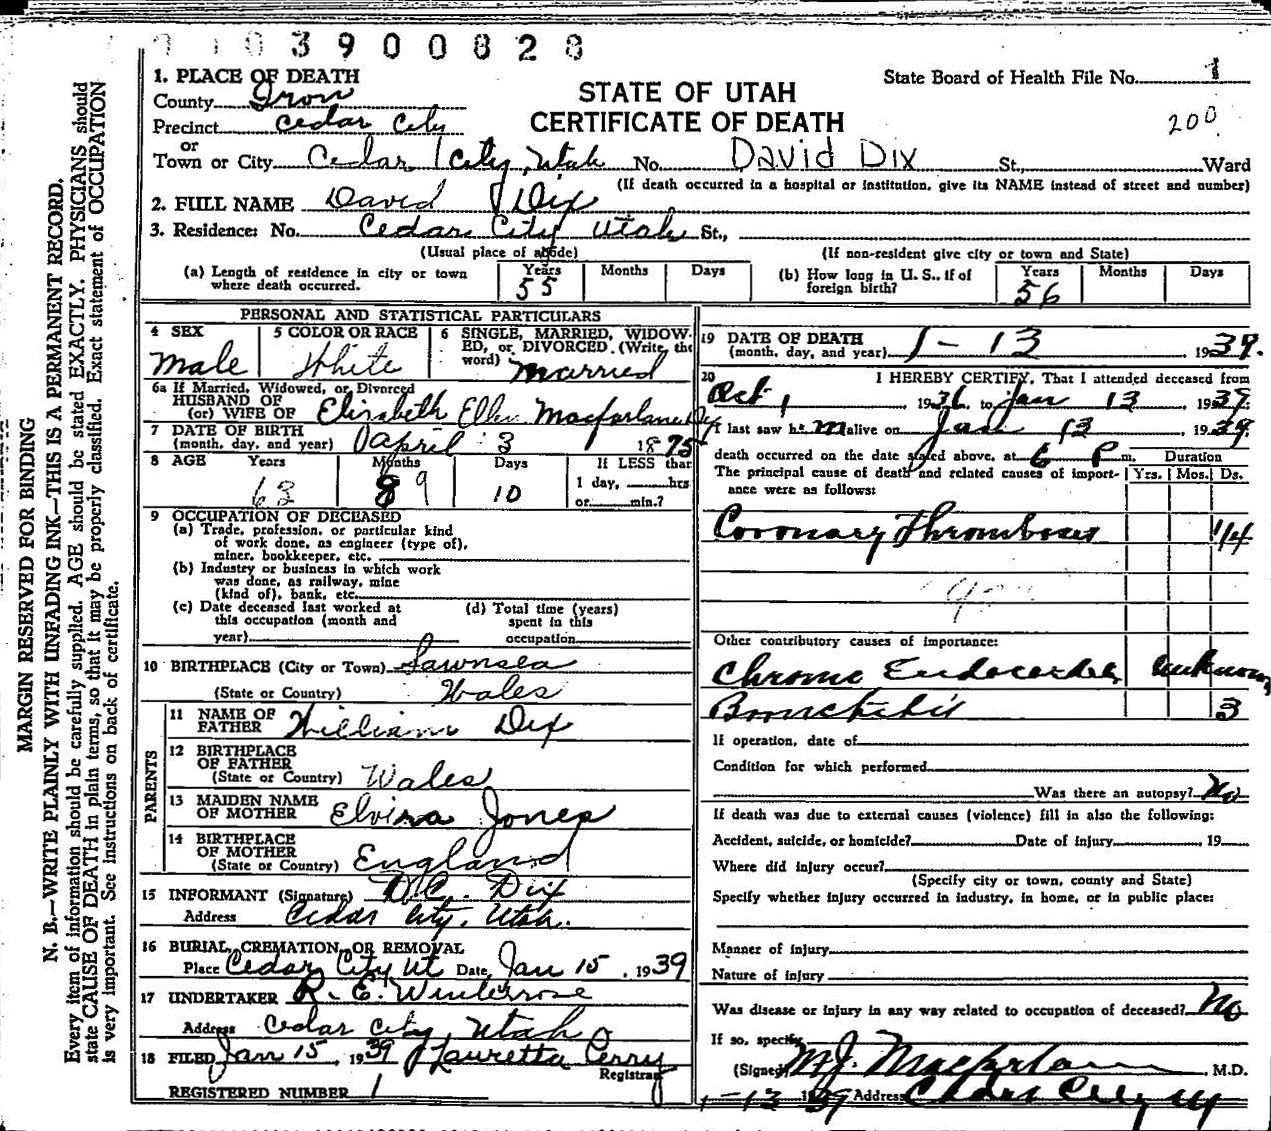 3900828
1. PLACE OF DEATH
County Iron
Precinct Cedar City
or
Town or City Cedar City, Utah No. David Dix St., Ward
STATE OF UTAH
CERTIFICATE OF DEATH
State Board of Health File No. 1
200
(If death occurred in a hospital or institution, give its NAME instead of street and number)
2. FULL NAME David Dix
3. Residence: No. Cedar City Utah St.,
(Usual place of abode)
(If non-resident give city or town and State)
(a) Length of residence in city or town where death occurred. Years 55 Months Days
(b) How long in U. S., if of foreign birth? Years 56 Months Days
PERSONAL AND STATISTICAL PARTICULARS
4 SEX Male
5 COLOR OR RACE White
6 SINGLE, MARRIED, WIDOWED, or DIVORCED. (Write the word) Married
6a If Married, Widowed, or Divorced
HUSBAND OF
(or) WIFE OF Elizabeth Ellen Macfarlane Dix
7 DATE OF BIRTH
(month, day, and year) April 3 1875
8 AGE Years 63 Months 9 Days 10
If LESS than
1 day, hrs
or min.?
9 OCCUPATION OF DECEASED
(a) Trade, profession, or particular kind
of work done, as engineer (type of),
miner, bookkeeper, etc.
(b) Industry or business in which work
was done, as railway, mine
(kind of), bank, etc.
(c) Date deceased last worked at
this occupation (month and
year)
(d) Total time (years)
spent in this
occupation
10 BIRTHPLACE (City or Town) Sawnsea
(State or Country) Wales
PARENTS
11 NAME OF
FATHER William Dix
12 BIRTHPLACE
OF FATHER
(State or Country) Wales
13 MAIDEN NAME
OF MOTHER Elvira Jones
14 BIRTHPLACE
OF MOTHER
(State or Country) England
15 INFORMANT (Signature) D.C. Dix
Address Cedar City, Utah.
16 BURIAL, CREMATION, OR REMOVAL
Place Cedar City Ut Date Jan 15, 1939
17 UNDERTAKER R. E. Winterrose
Address Cedar City, Utah
18 FILED Jan 15 1939 Lauretta Perry
Registrar
REGISTERED NUMBER 1
19 DATE OF DEATH
(month, day, and year) 1 - 13 1939.
20 I HEREBY CERTIFY, That I attended deceased from
Oct 1 1936, to Jan 13 1939
I last saw h m alive on Jan 13 1939
death occurred on the date stated above, at 6 P m. Duration
The principal cause of death and related causes of importance were as follows: Yrs. Mos. Ds.
Coronary Thrombosis 1/4
Other contributory causes of importance:
Chronic Endocarditis unknown
Bronchitis 3
If operation, date of
Condition for which performed
Was there an autopsy? No
If death was due to external causes (violence) fill in also the following:
Accident, suicide, or homicide? Date of injury 19
Where did injury occur?
(Specify city or town, county and State)
Specify whether injury occurred in industry, in home, or in public place:
Manner of injury
Nature of injury
Was disease or injury in any way related to occupation of deceased? No
If so, specify
(Signed) M.J. Macfarlane, M.D.
1-13 1939 Address Cedar City Ut
MARGIN RESERVED FOR BINDING
N. B.—WRITE PLAINLY WITH UNFADING INK—THIS IS A PERMANENT RECORD.
Every item of information should be carefully supplied. AGE should be stated EXACTLY. PHYSICIANS should
state CAUSE OF DEATH in plain terms, so that it may be properly classified. Exact statement of OCCUPATION
is very important. See instructions on back of certificate.